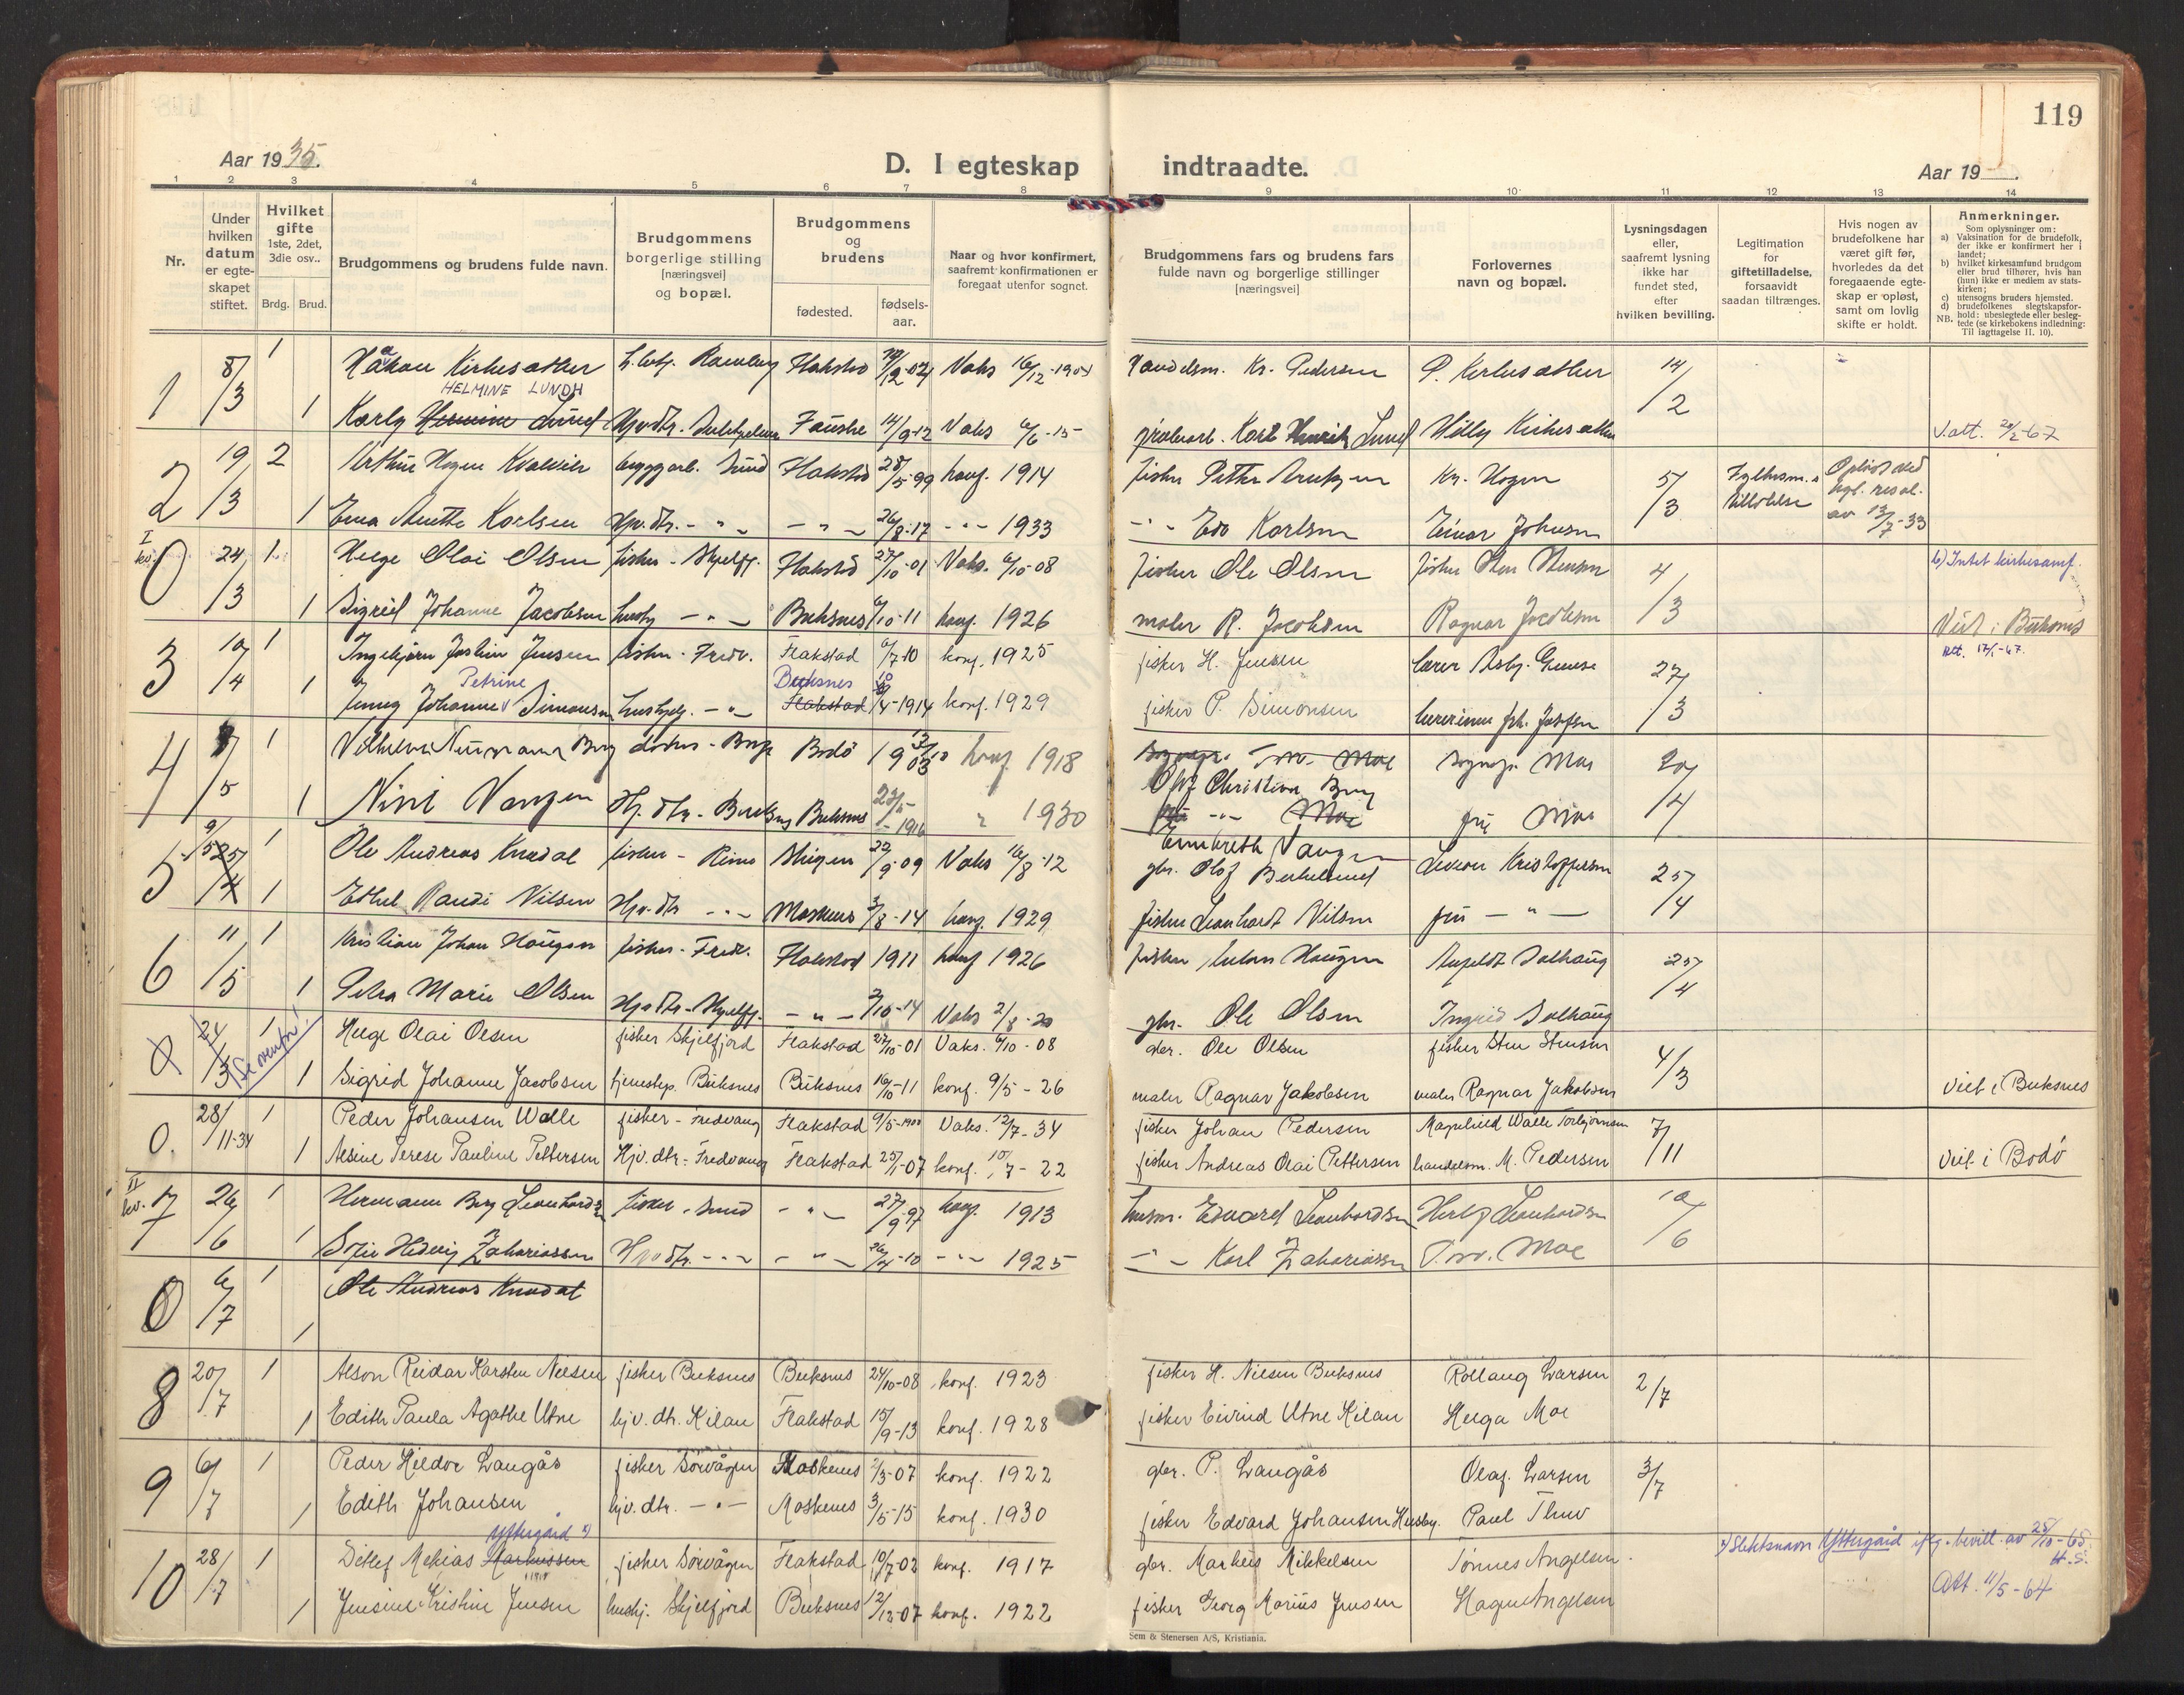 119
Aar 1935.
D. I egteskap
indtraadte.
Aar 19
1 2 3 4 5 6 7 8 9 10 11 12 13 14
Nr.
Under hvilken datum er egte-skapet stiftet.
Hvilket gifte 1ste, 2det, 3die osv..
Brdg. Brud.
Brudgommens og brudens fulde navn.
Brudgommens borgerlige stilling [næringsvei] og bopæl.
Brudgommens og brudens
fødested.
fødsels-aar.
Naar og hvor konfirmert, saafremt konfirmationen er foregaat utenfor sognet.
Brudgommens fars og brudens fars fulde navn og borgerlige stillinger [næringsvei]
Forlovernes navn og bopæl.
Lysningsdagen eller, saafremt lysning ikke har fundet sted, efter hvilken bevilling.
Legitimation for giftetilladelse, forsaavidt saadan tiltrænges.
Hvis nogen av brudefolkene har været gift før, hvorledes da det foregaaende egte-skap er opløst, samt om lovlig skifte er holdt.
Anmerkninger.
Som oplysninger om:
a) Vaksination for de brudefolk, der ikke er konfirmert her i landet;
b) hvilket kirkesamfund brudgom eller brud tilhører, hvis han (hun) ikke er medlem av stats-kirken;
c) utensogns bruders hjemsted.
d) brudefolkenes slegtskapsfor-hold: ubeslegtede eller besleg-tede (se kirkebokens indledning:
NB. Til iagttagelse II. 10).
1 8/3 1 Håkon Kirkesæther Ramberg Flakstad Vaks 16/12-1904 Handelsm. Kr. Pedersen P. Kirkesæther 14/2
HELMINE LUNDH
1 Karly Hermine Lund Hjv.dtr. Sulitjelma Fauske 14/9-12 Vaks 6/6-15 grubearb. Karl Henrik Lund Willy Kirkesæther V.att. 20/2-67
2 19/3 2 Arthur Hogen Kvalvik byggarb. Sund Flakstad 28/5-99 konf. 1914 fisker Kr. Hogen 5/3 Fylkesm.s tillatelse Opløst ved kgl. resol. av 13/7-33
1 Erna Anette Karlsen Hjv.dtr. - " - - " - 26/8-17 - " - 1933 - " - Edv Karlsen Einar Johnsen
I kv. 0 24/3 1 Helge Olai Olsen fisker - Skjelfj. Flakstad 27/10-01 Vaks. 6/10-08 fisker Ole Olsen fisker Sten Stensen 4/3 b) Intet kirkesamf.
1 Sigrid Johanne Jacobsen husby - " - Buksnes 6/10-11 konf. 1926 maler R. Jacobsen Ragnar Jacobsen Viet i Buksnes
Att. 17/1-67.
3 10/4 1 Ingebjørn Joakim Jensen fisker - Fredv. Flakstad 6/7-10 konf. 1925 fisker H. Jensen lærer Asbj. Grense 27/3
Petrine Buksnes 10
1 Jenny Johanne Simonsen hushjelp. - " - Flakstad /4-1914 konf. 1929 fisker P. Simonsen lærerinne Joh. Josefsen
4 7/5 1 Vilhelm Berg Bodö 1903 konf 1918 Sognepr. Tov. Moe Sognepr. Moe 20/4
Olaf Christian Berg
1 Nini Vangen Hj. dtr. - Buksnes 23/5-1916 " 1930 fru - " - Moe fru Moe
Vangen
5 9/5 25/4 1 Ole Andreas Knudal fisker - Reine Steigen 22/9-09 Vaks 16/8-12 gbr. Olaf Kristoffersen 25/4
1 Ethel Randi Nilsen Hjv.dtr - " - Moskenes 3/8-14 konf. 1929 fisker Leonhardt Nilsen fru - " -
6 11/5 1 Kristian Johan Haugen fisker - Fredv. Flakstad 1911 konf 1926 fisker Haugen Solhaug 25/4
1 Petra Marie Olsen Hjv.dtr - Skjelfj. - " - 2/10-14 Vaks 2/8-20 gbr. Ole Olsen Ingrid Solhaug
0 24/3 1 Helge Olai Olsen fisker Skjelfjord Flakstad 27/10-01 Vaks. 6/10-08 gbr. Ole Olsen fisker Sten Stensen 4/3
Se ovenfor!
1 Sigrid Johanne Jacobsen hjemehjp. Buksnes Buksnes 16/10-11 konf. 9/5-26 maler Ragnar Jakobsen maler Ragnar Jakobsen viet i Buksnes
0. 28/11-34 1 Peder Johansen Walle fisker - Fredvang Flakstad 9/5-1900 Vaks. 12/7-34 fisker Johan Pedersen Magnhild Walle Torbjørnsen 7/11
1 Alsine Terese Pauline Pettersen Hjv.dtr - Fredvang Flakstad 25/1-07 konf. 10/7-22 fisker Andreas Olai Pettersen handelsm. M. Pedersen viet i Bodö
II kv. 7 26/6 1 Hermann Berg Leonhardsen fisker - Sund - " - 27/9-97 konf. 1913 husm. Edvard Leonhardsen Leonhardsen 10/6
1 Sofie Hedvig Zakariassen Hjv.dtr. - " - - " - 26/4-10 - " - 1925 - " - Karl Zakariassen Tov. Moe
0 6/7 1 Ole Andreas Knudal
1
8 20/7 1 Alson Reidar Karsten Nilsen fisker Buksnes Buksnes 24/10-08 konf. 1923 fisker H. Nilsen Buksnes Rollaug Larsen 2/7
1 Edith Paula Agathe Utne hjv.dtr. Kilan Flakstad 15/9-13 konf. 1928 fisker Eivind Utne Kilan Helga Moe
9 6/7 1 Peder Hildor Langås fisker Sörvågen Moskenes 2/3-07 konf. 1922 gbr. P. Langås Olaf. Larsen 3/7
1 Edith Johansen hjv.dtr. - " - Moskenes 3/5-15 konf. 1930 fisker Edvard Johansen Husby. Paul Thuv
Yttergård x)
10 28/7 1 Ditlef Mekias Markussen fisker Sörvågen Flakstad 10/7-02 konf. 1917 gbr. Markus Mikkelsen Tönnes Angelsen. x) Slektsnavn Yttergård iflg. bevill. av 25/10-65. H.S.
1 Jensine Kristine Jensen hushj. Skjelfjord Buksnes 12/12-07 konf. 1922 fisker Georg Marius Jensen Hagne Angelsen Att. 11/5-64
Sem & Stenersen A/S, Kristiania.